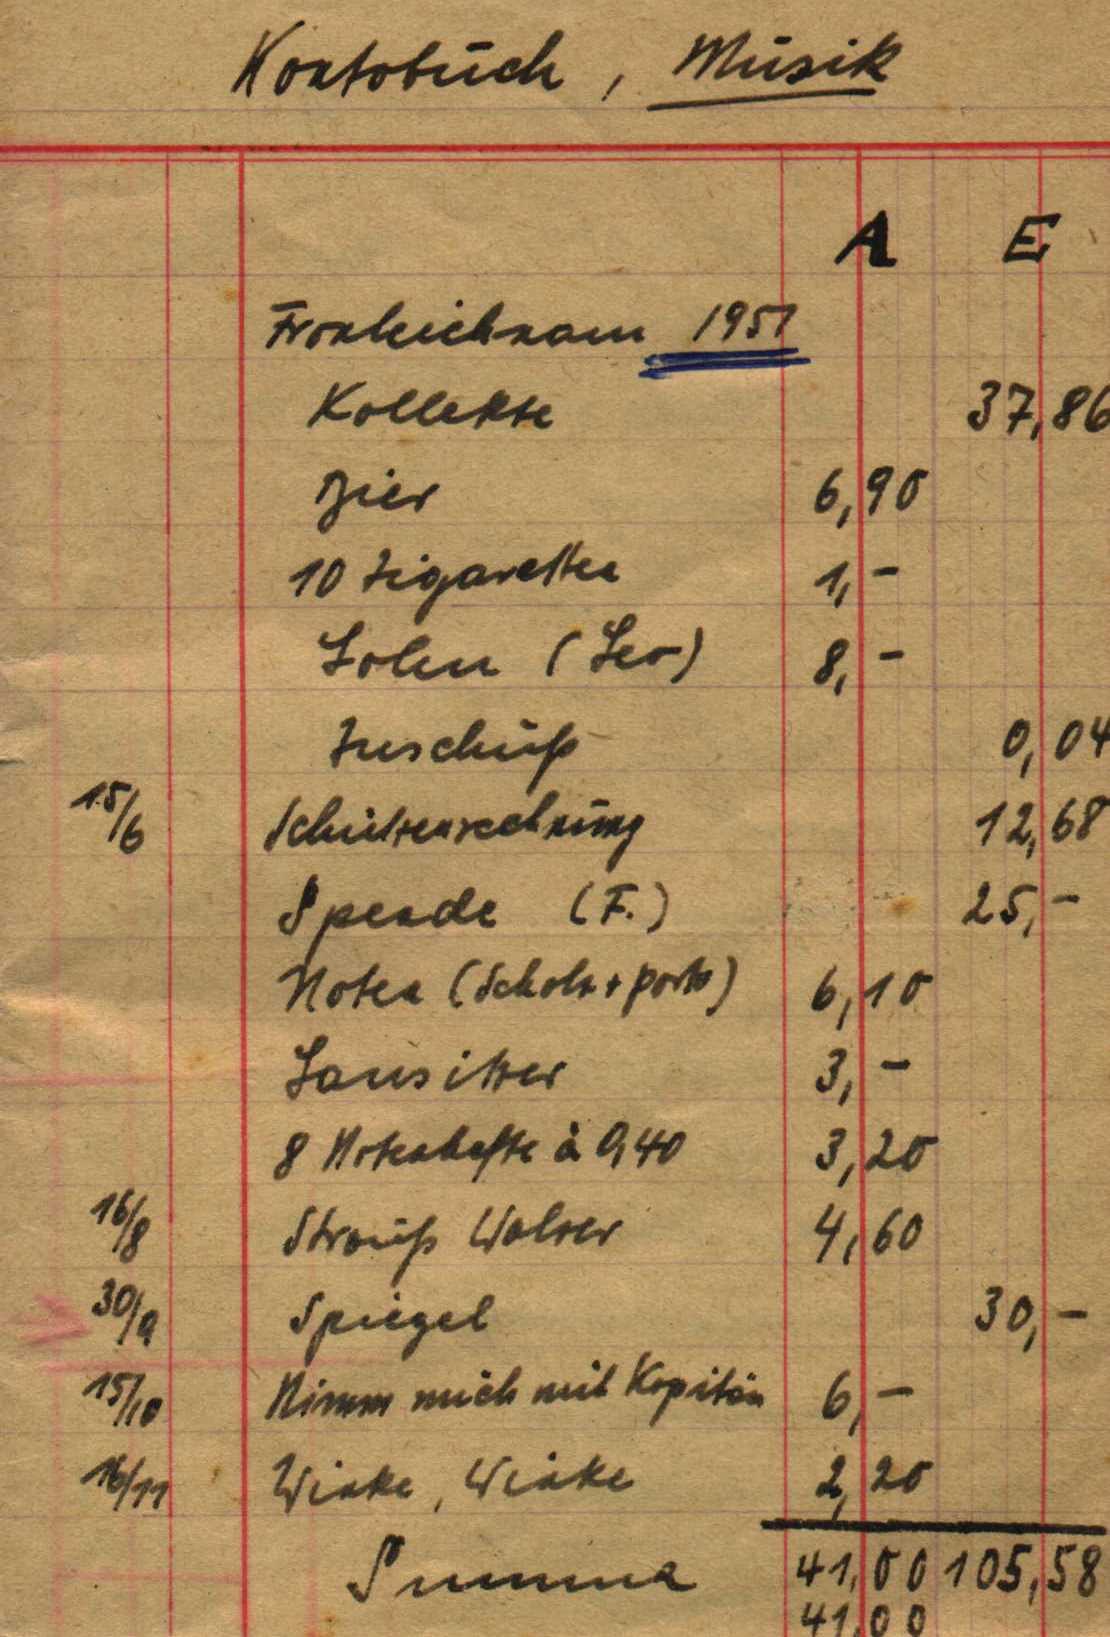 Kontobuch, Musik
A E
Fronleichnam 1951
Kollekte 37,86
Bier 6,90
10 Zigaretten 1,-
Lohn (Leo) 8,-
Zuschuß 0,04
15/6 Schützenrechnung 12,68
Spende (F.) 25,-
Noten (Scholz + Porto) 6,10
Lausitzer 3,-
8 Notenhefte à 0,40 3,20
16/8 Strauß Walzer 4,60
30/9 Spiegel 30,-
15/10 Nimm mich mit Kapitän 6,-
16/11 Winke, Winke 2,20
Summa 41,00 105,58
41,00